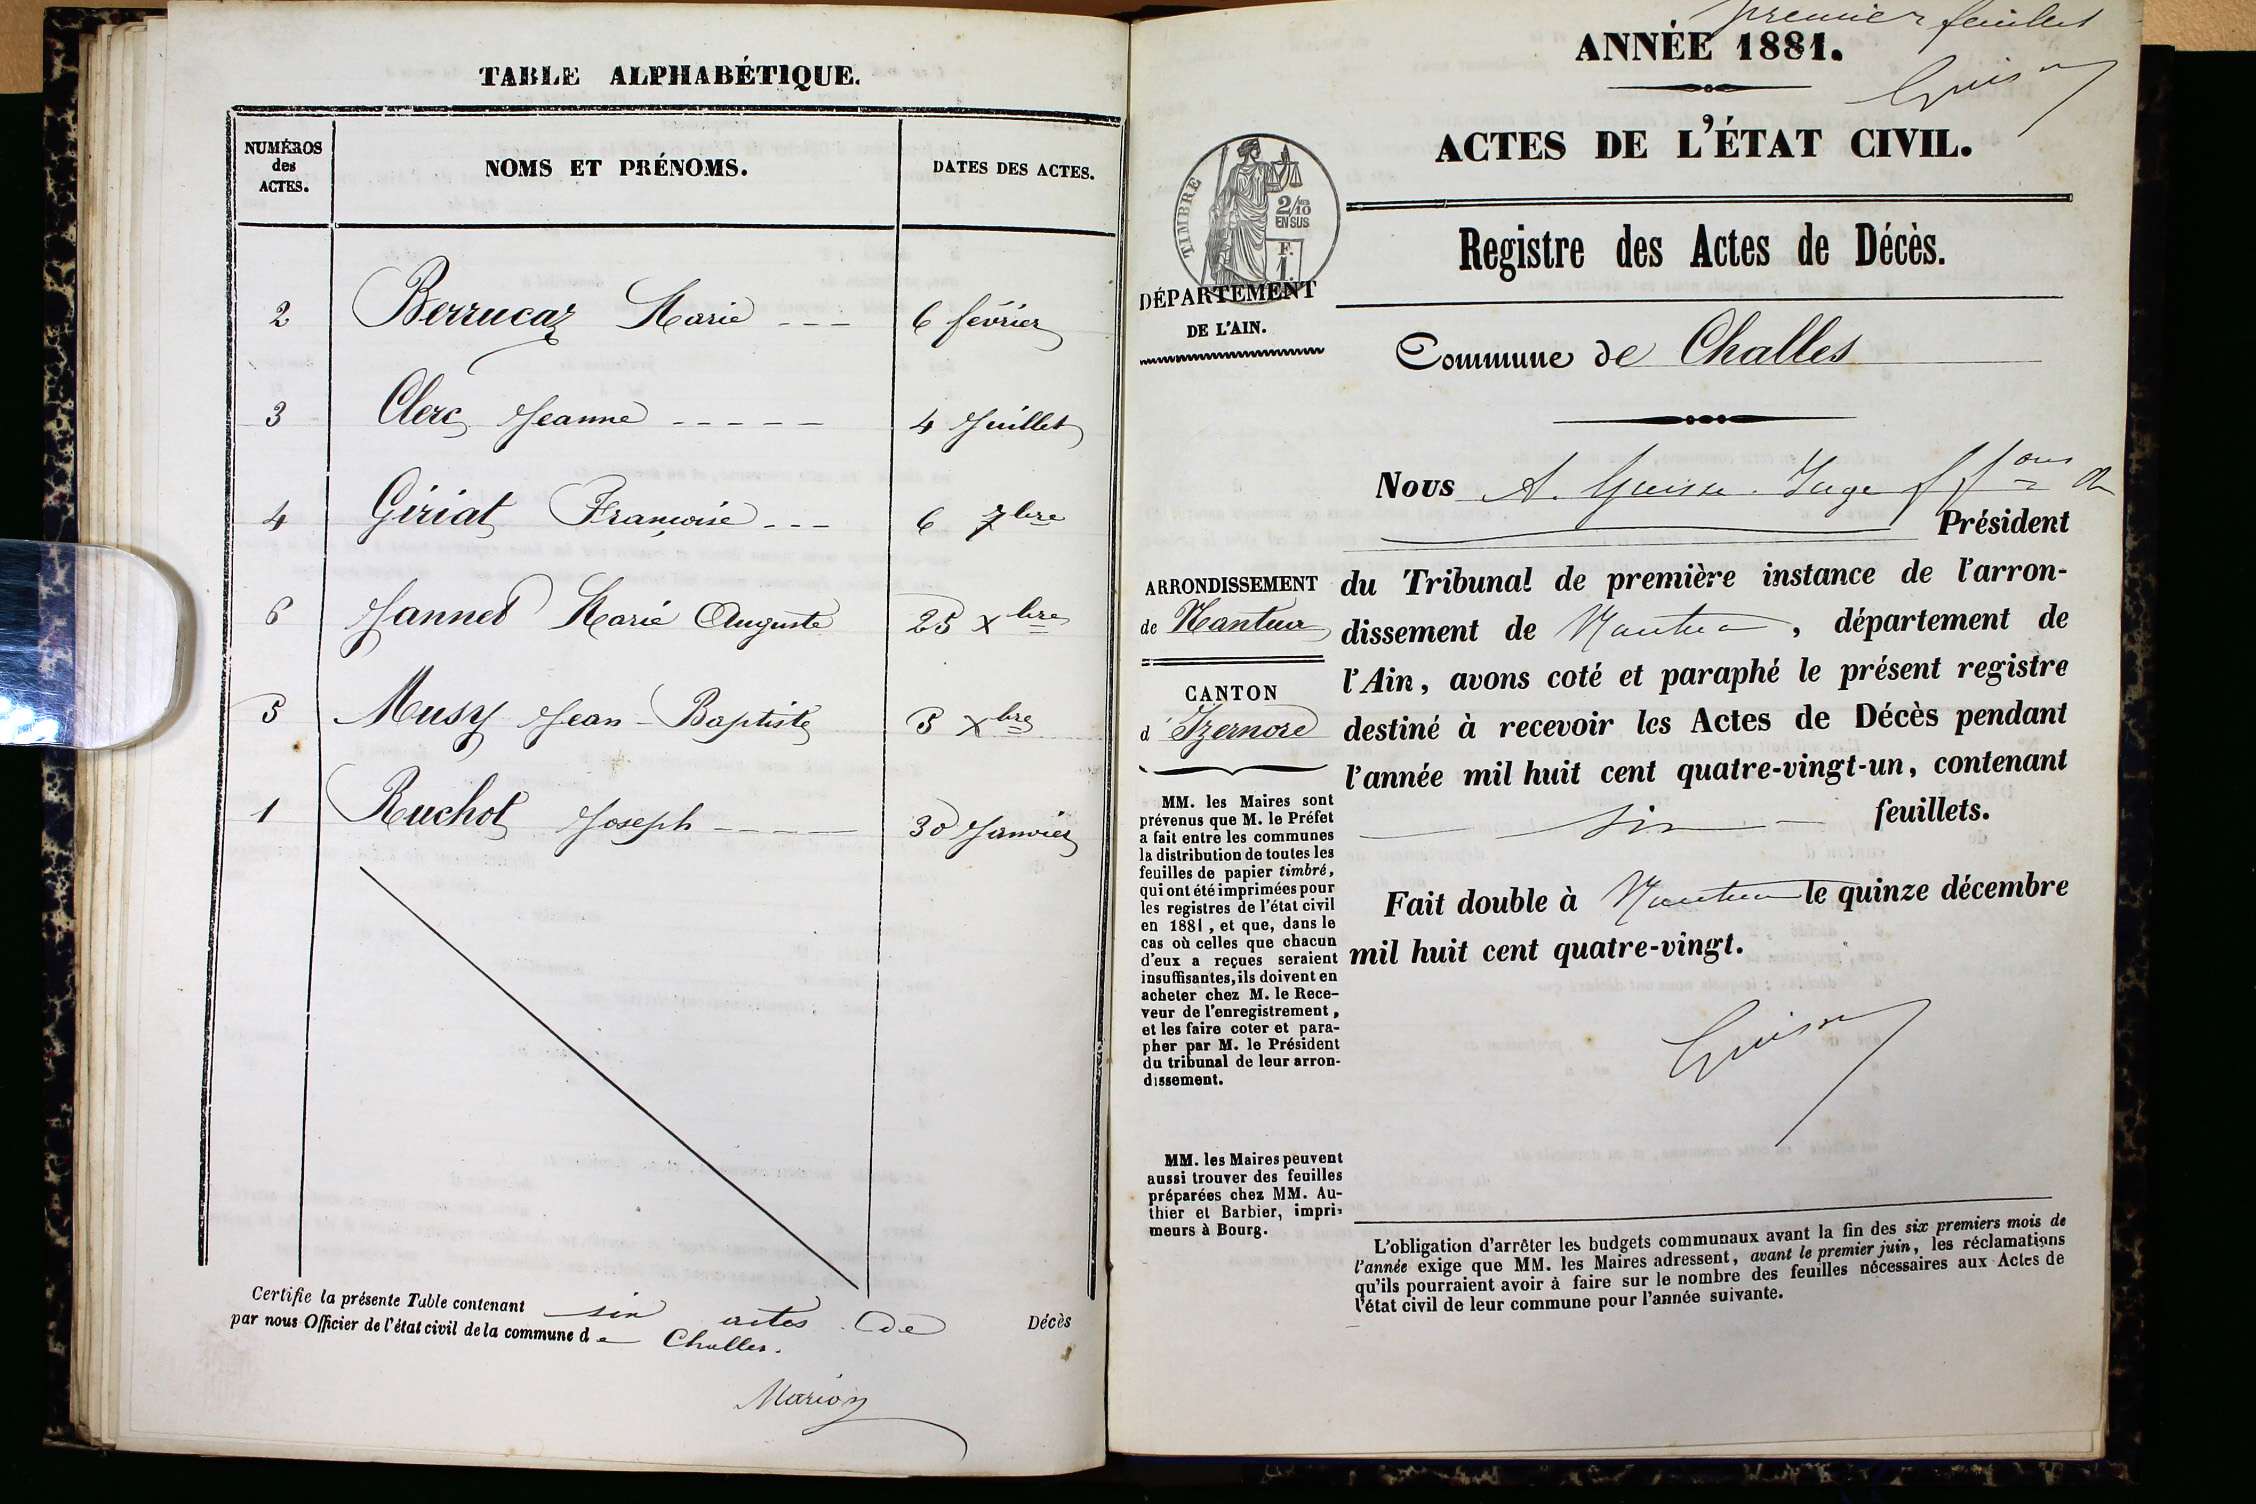 TABLE ALPHABÉTIQUE.
NUMÉROS
des
ACTES.
NOMS ET PRÉNOMS.
DATES DES ACTES.
2 Berrucaz Marie --- 6 février
3 Clerc Jeanne ----- 4 Juillet
4 Giriat Françoise --- 6 7bre
6 Jannet Marie Auguste 25 Xbre
5 Musy Jean-Baptiste 5 Xbre
1 Ruchot Joseph ---- 30 Janvier
Certifie la présente Table contenant six actes de Décès
par nous Officier de l'état civil de la commune de Challes.
Marion
premier feuillet
ANNÉE 1881.
ACTES DE L'ÉTAT CIVIL.
TIMBRE
2/10
EN SUS
F.
1.
Registre des Actes de Décès.
DÉPARTEMENT
DE L'AIN.
Commune de Challes
Nous A. Juge
Président
du Tribunal de première instance de l'arron-
dissement de Nantua, département de
l'Ain, avons coté et paraphé le présent registre
destiné à recevoir les Actes de Décès pendant
l'année mil huit cent quatre-vingt-un, contenant
six feuillets.
Fait double à Nantua le quinze décembre
mil huit cent quatre-vingt.
ARRONDISSEMENT
de Nantua
CANTON
d'Izernore
MM. les Maires sont
prévenus que M. le Préfet
a fait entre les communes
la distribution de toutes les
feuilles de papier timbré,
qui ont été imprimées pour
les registres de l'état civil
en 1881, et que, dans le
cas où celles que chacun
d'eux a reçues seraient
insuffisantes, ils doivent en
acheter chez M. le Rece-
veur de l'enregistrement,
et les faire coter et para-
pher par M. le Président
du tribunal de leur arron-
dissement.
MM. les Maires peuvent
aussi trouver des feuilles
préparées chez MM. Au-
thier et Barbier, impri-
meurs à Bourg.
L'obligation d'arrêter les budgets communaux avant la fin des six premiers mois de
l'année exige que MM. les Maires adressent, avant le premier juin, les réclamations
qu'ils pourraient avoir à faire sur le nombre des feuilles nécessaires aux Actes de
l'état civil de leur commune pour l'année suivante.